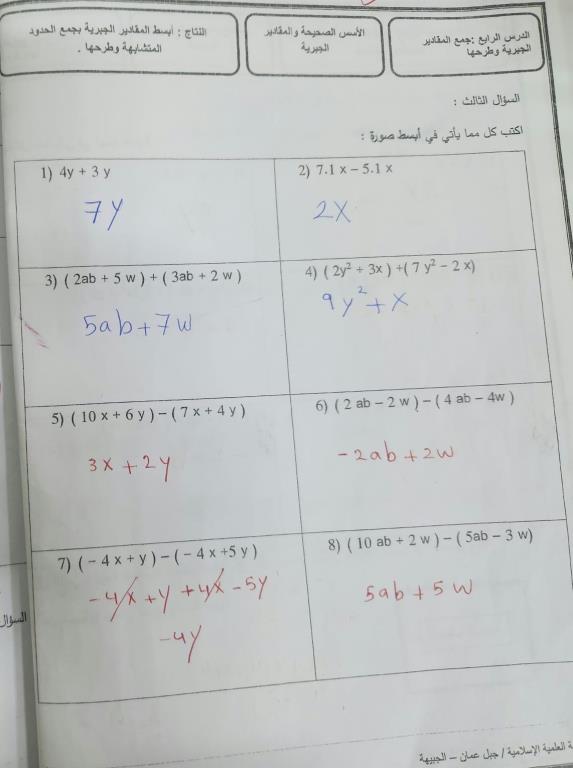 الدرس الرابع :جمع المقادير
الجبرية وطرحها
الأسس الصحيحة والمقادير
الجبرية
النتاج : أبسط المقادير الجبرية بجمع الحدود
المتشابهة وطرحها .
السؤال الثالث :
اكتب كل مما يأتي في أبسط صورة :
1) 4y + 3 y
7y
2) 7.1 x – 5.1 x
2x
3) ( 2ab + 5 w ) + ( 3ab + 2 w )
5ab + 7w
4) ( 2y² + 3x ) +( 7 y² – 2 x)
9y² + x
5) ( 10 x + 6 y ) – ( 7 x + 4 y )
3x + 2y
6) ( 2 ab – 2 w ) – ( 4 ab – 4w )
-2ab + 2w
7) ( – 4 x + y ) – ( – 4 x +5 y )
-4x + y + 4x - 5y
-4y
8) ( 10 ab + 2 w ) – ( 5ab – 3 w)
5ab + 5w
السؤال
العلمية الإسلامية / جبل عمان – الجبيهة